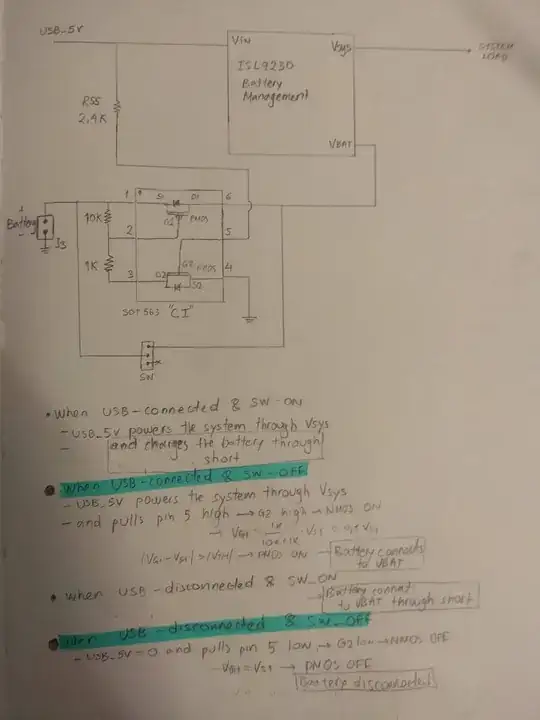 USB_5V
VIN
VSYS
SYSTEM
LOAD
ISL9230
Battery
Management
VBAT
R55
2,4K
1
S1
D1
6
+
Battery
J3
10K
G1
PMOS
2
5
1K
G2
NMOS
4
3
D2
S2
SOT563 "CI"
SW
• When USB-connected & SW-ON
- USB_5V powers the system through Vsys
- and charges the battery through
short
• When USB-connected & SW-OFF
- USB_5V powers the system through Vsys
- and pulls pin 5 high → G2 high → NMOS ON
→ VG1 = 1K / 10K+1K · VS1 = 0,1 VS1
|VG1-VS1| > |VTH| → PMOS ON → Battery connects
to VBAT
• When USB-disconnected & SW_ON
→ Battery connect
to VBAT through short
• When USB-disconnected & SW_OFF
- USB_5V=0 and pulls pin 5 low → G2 low → NMOS OFF
- VG1 = VS1 → PMOS OFF
Battery disconnected